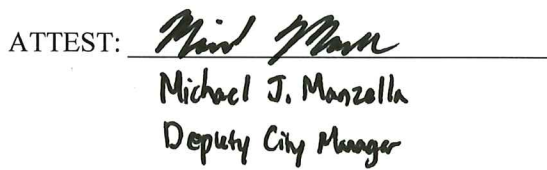 ATTEST:
Michael J. Manzella
Deputy City Manager